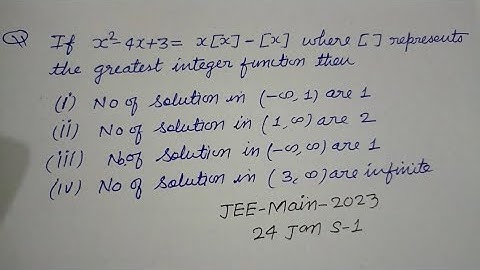 Q If x²-4x+3 = x[x]-[x] where [ ] represents
the greatest integer function then
(i) No of solution in (-∞, 1) are 1
(ii) No of solution in (1, ∞) are 2
(iii) No of solution in (-∞, ∞) are 1
(iv) No of solution in (3, ∞) are infinite
JEE-Main-2023
24 Jan S-1